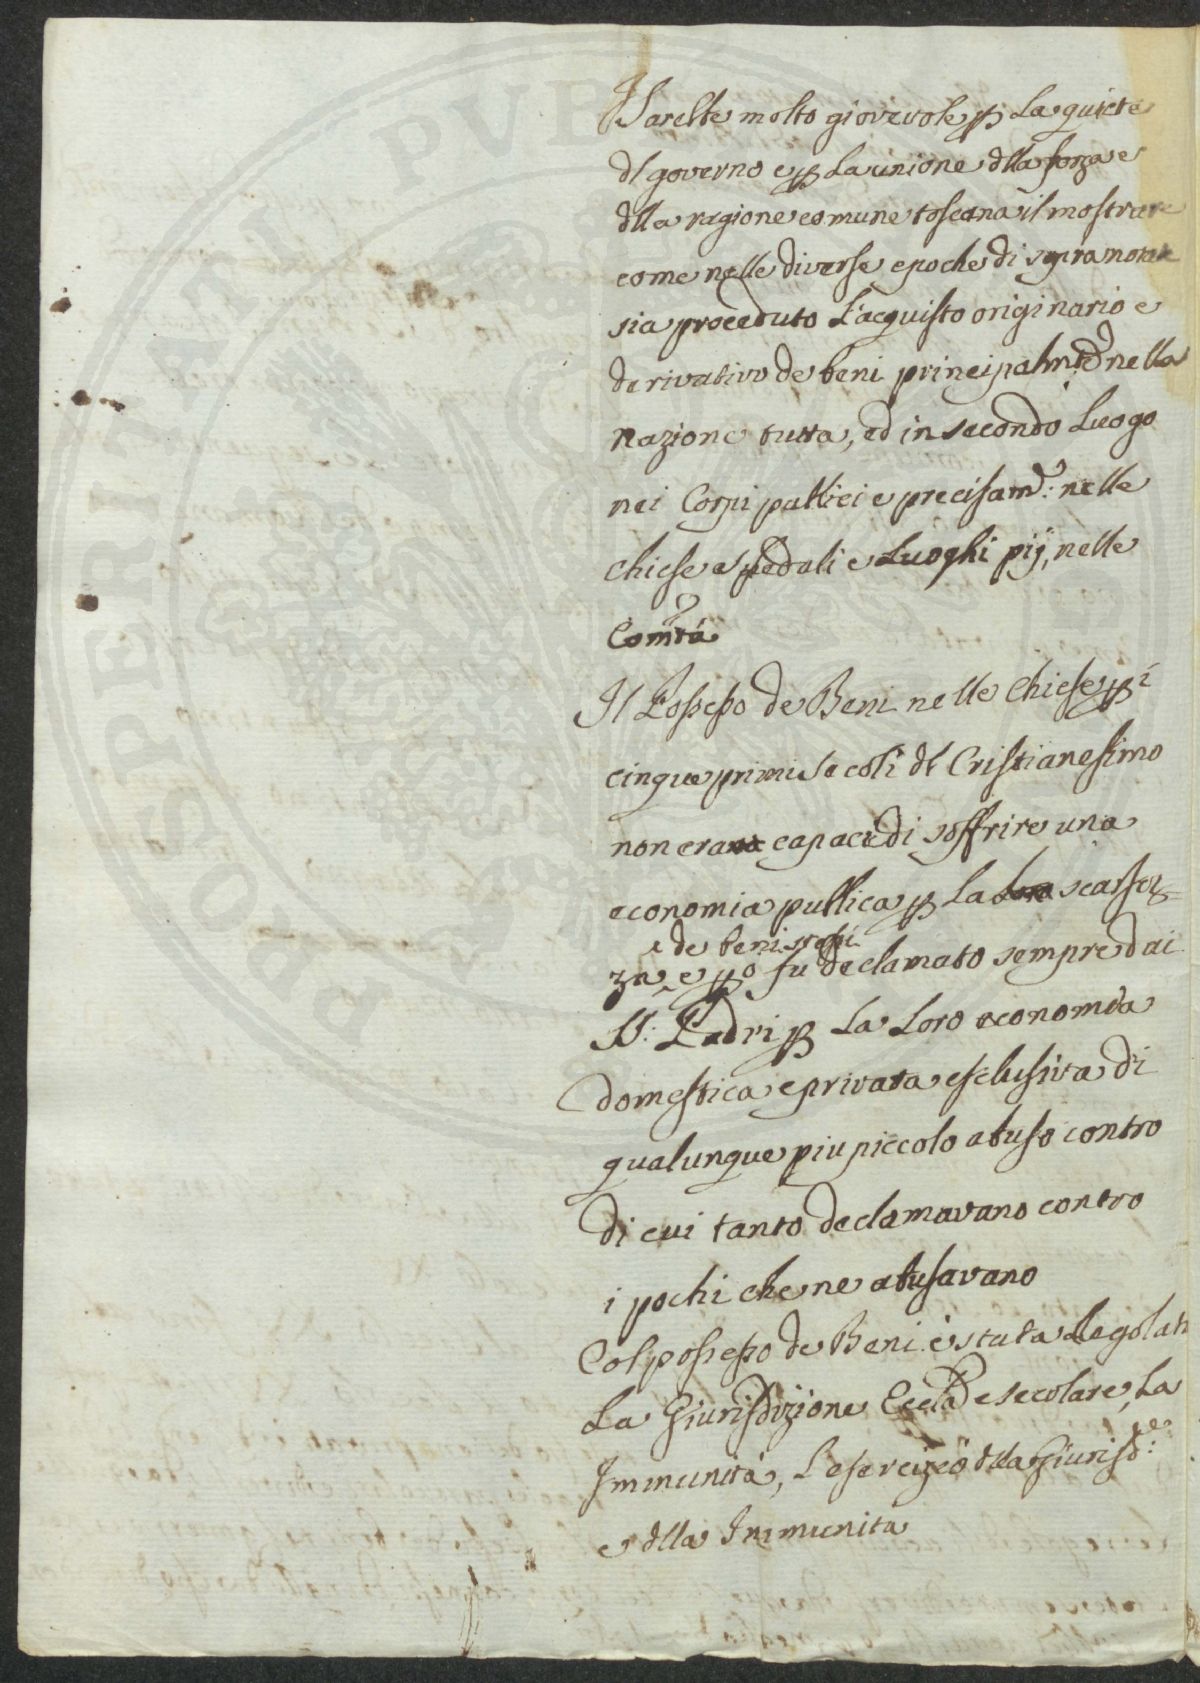 Sarebbe molto giovevole p La quiete
dl governo e p La unione dlla forza e
dlla ragione comune toscana il mostrare
come nelle diverse epoche di sopra notate
sia proceduto L'acquisto originario e
derivativo de beni principalmte nella
nazione tutta, ed in secondo Luogo
nei Corpi publici e precisamte: nelle
chiese spedali e Luoghi pij, nelle
Comtà
Il Possesso de Beni nelle Chiese p i
cinque primi secoli dl Cristianesimo
non era capace di soffrire una
economia publica p La scarsez=
za de beni stessi e pò fu declamato sempre dai
SS: Padri p La Loro economia
domestica e privata esclusiva di
qualunque piu piccolo abuso contro
di cui tanto declamavano contro
i pochi che ne abusavano
Col possesso de Beni è stata Regolata
La Giurisdizione Eccla e secolare, La
Immunità, L'esercizio dlla Giurisde:
e dlla Immunita
PROSPERITATI PVB